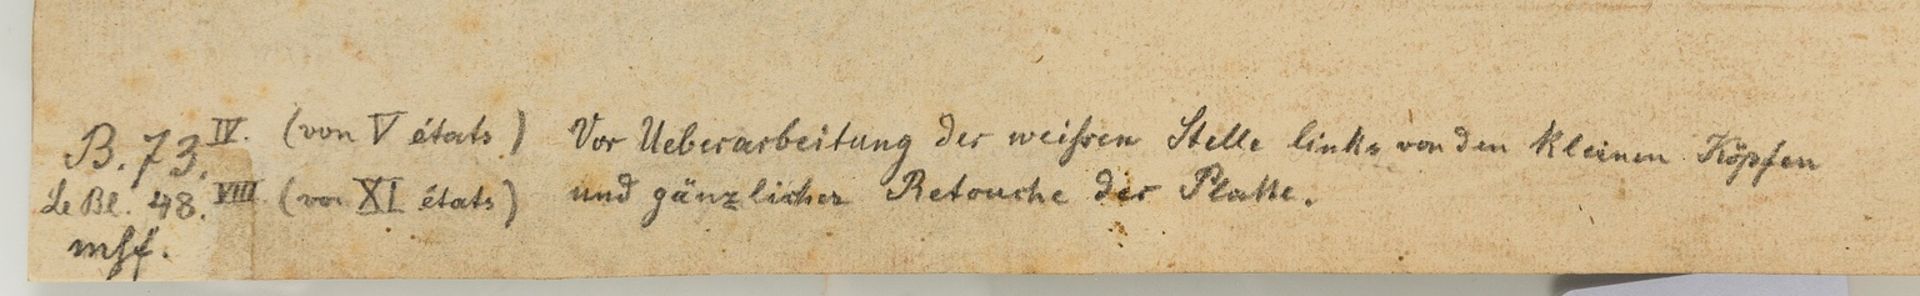 B. 73. IV. (von V états) Vor Ueberarbeitung der weißen Stelle links von den kleinen Köpfen
Le Bl. 48. VIII (von XI états) und gänzlicher Retouche der Platte.